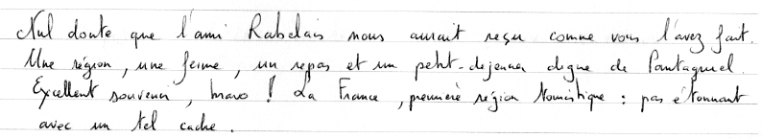 Nul doute que l'ami Rabelais nous aurait reçu comme vous l'avez fait.
Une région, une ferme, un repas et un petit-dejeuner digne de Pantagruel.
Excellent souvenir, bravo ! La France, première région touristique : pas étonnant
avec un tel cadre.